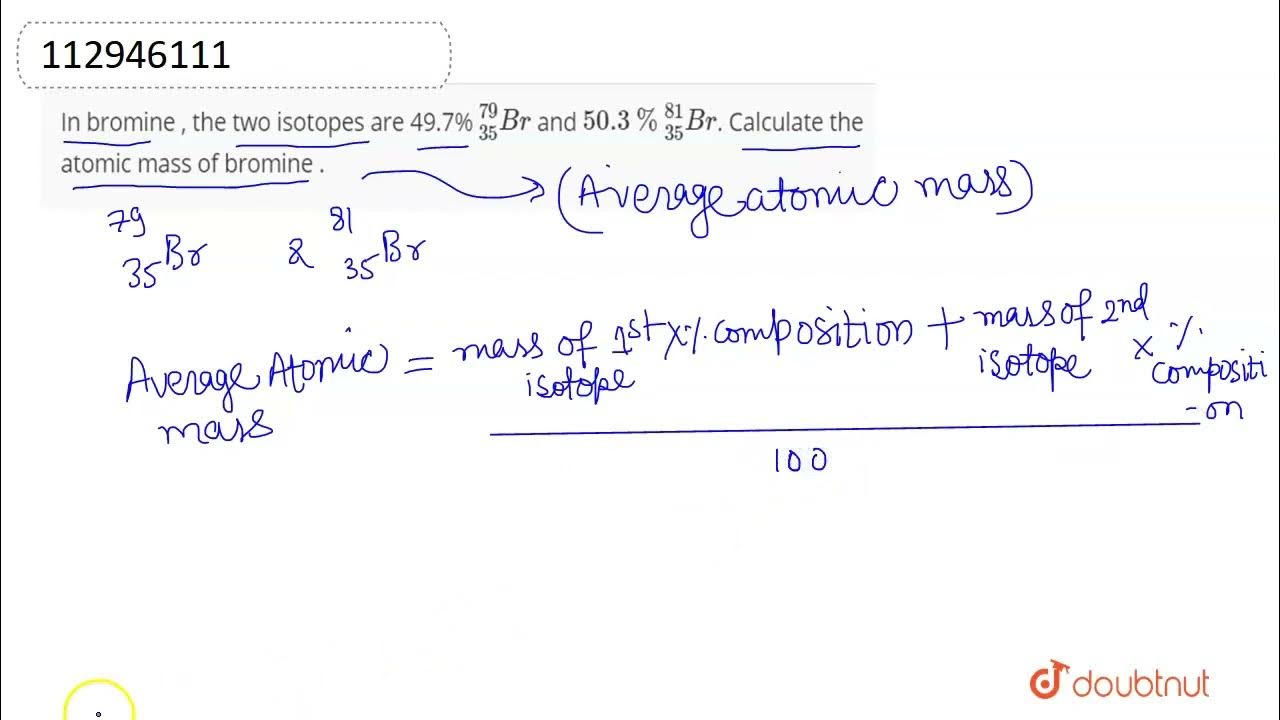 112946111
In bromine , the two isotopes are 49.7% ⁷⁹₃₅Br and 50.3 % ⁸¹₃₅Br. Calculate the
atomic mass of bromine .
(Average atomic mass)
⁷⁹₃₅Br & ⁸¹₃₅Br
Average Atomic mass = mass of 1st isotope x % composition + mass of 2nd isotope x % compositi-on
100
doubtnut